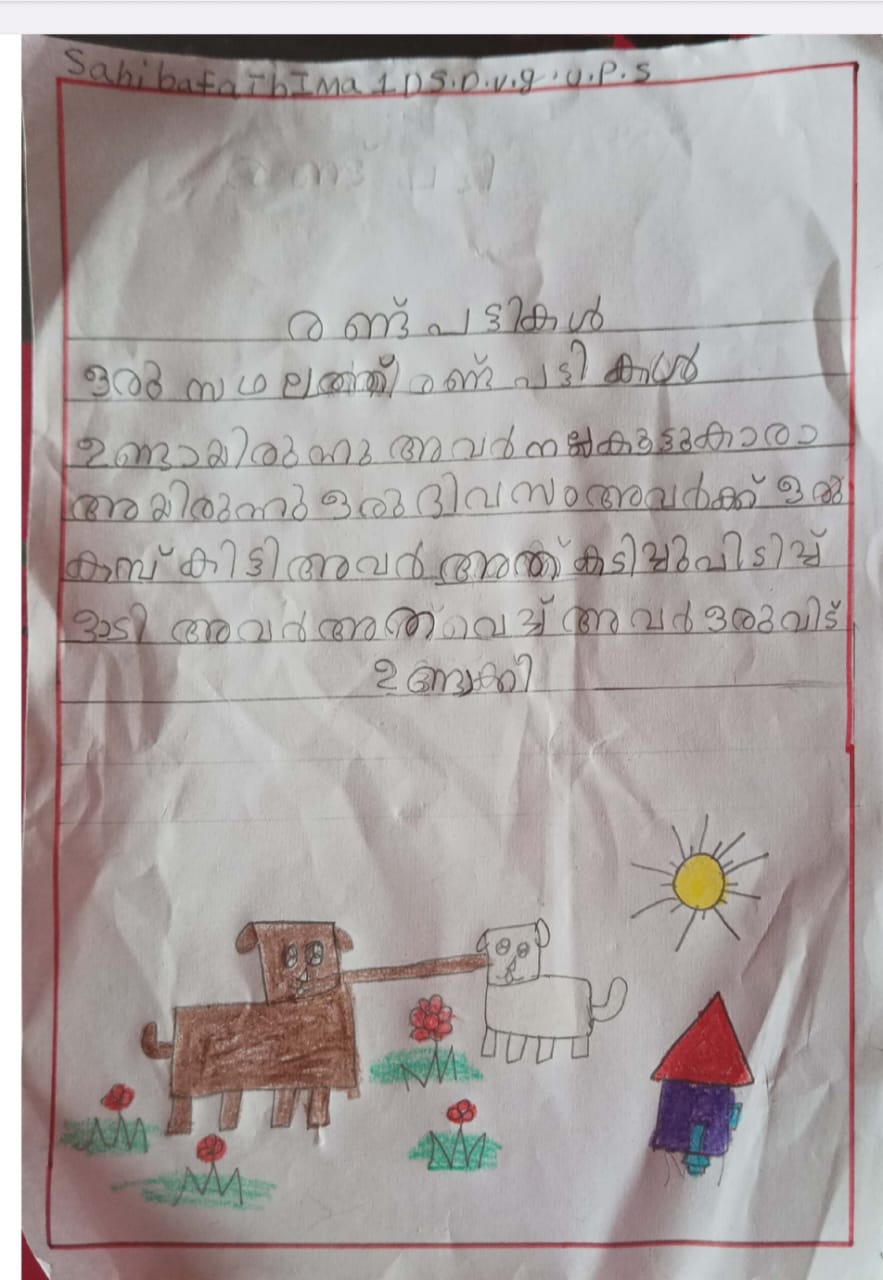 Sahibafathima 1 D S.D.V.g.U.P.S
രണ്ട് പട്ടികൾ
ഒരു സ്ഥലത്ത് രണ്ട് പട്ടികൾ
ഉണ്ടായിരുന്നു അവർ നല്ല കുട്ടുകാരാ
അയിരുന്നു ഒരു ദിവസം അവർക്ക് ഒരു
കമ്പ് കിട്ടി അവർ അത് കടിച്ചുപിടിച്ച്
ഓടി അവർ അത് വെച്ച് അവർ ഒരു വിട്
ഉണ്ടാക്കി